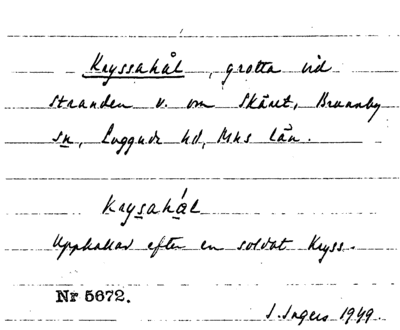 Kryssahål, grotta vid
stranden v. om Skäret, Brunnby
sn, Luggude hd, Mns län.
Krysahál
Uppkallad efter en soldat Kryss.
Nr 5672.
I. Ingers 1949.